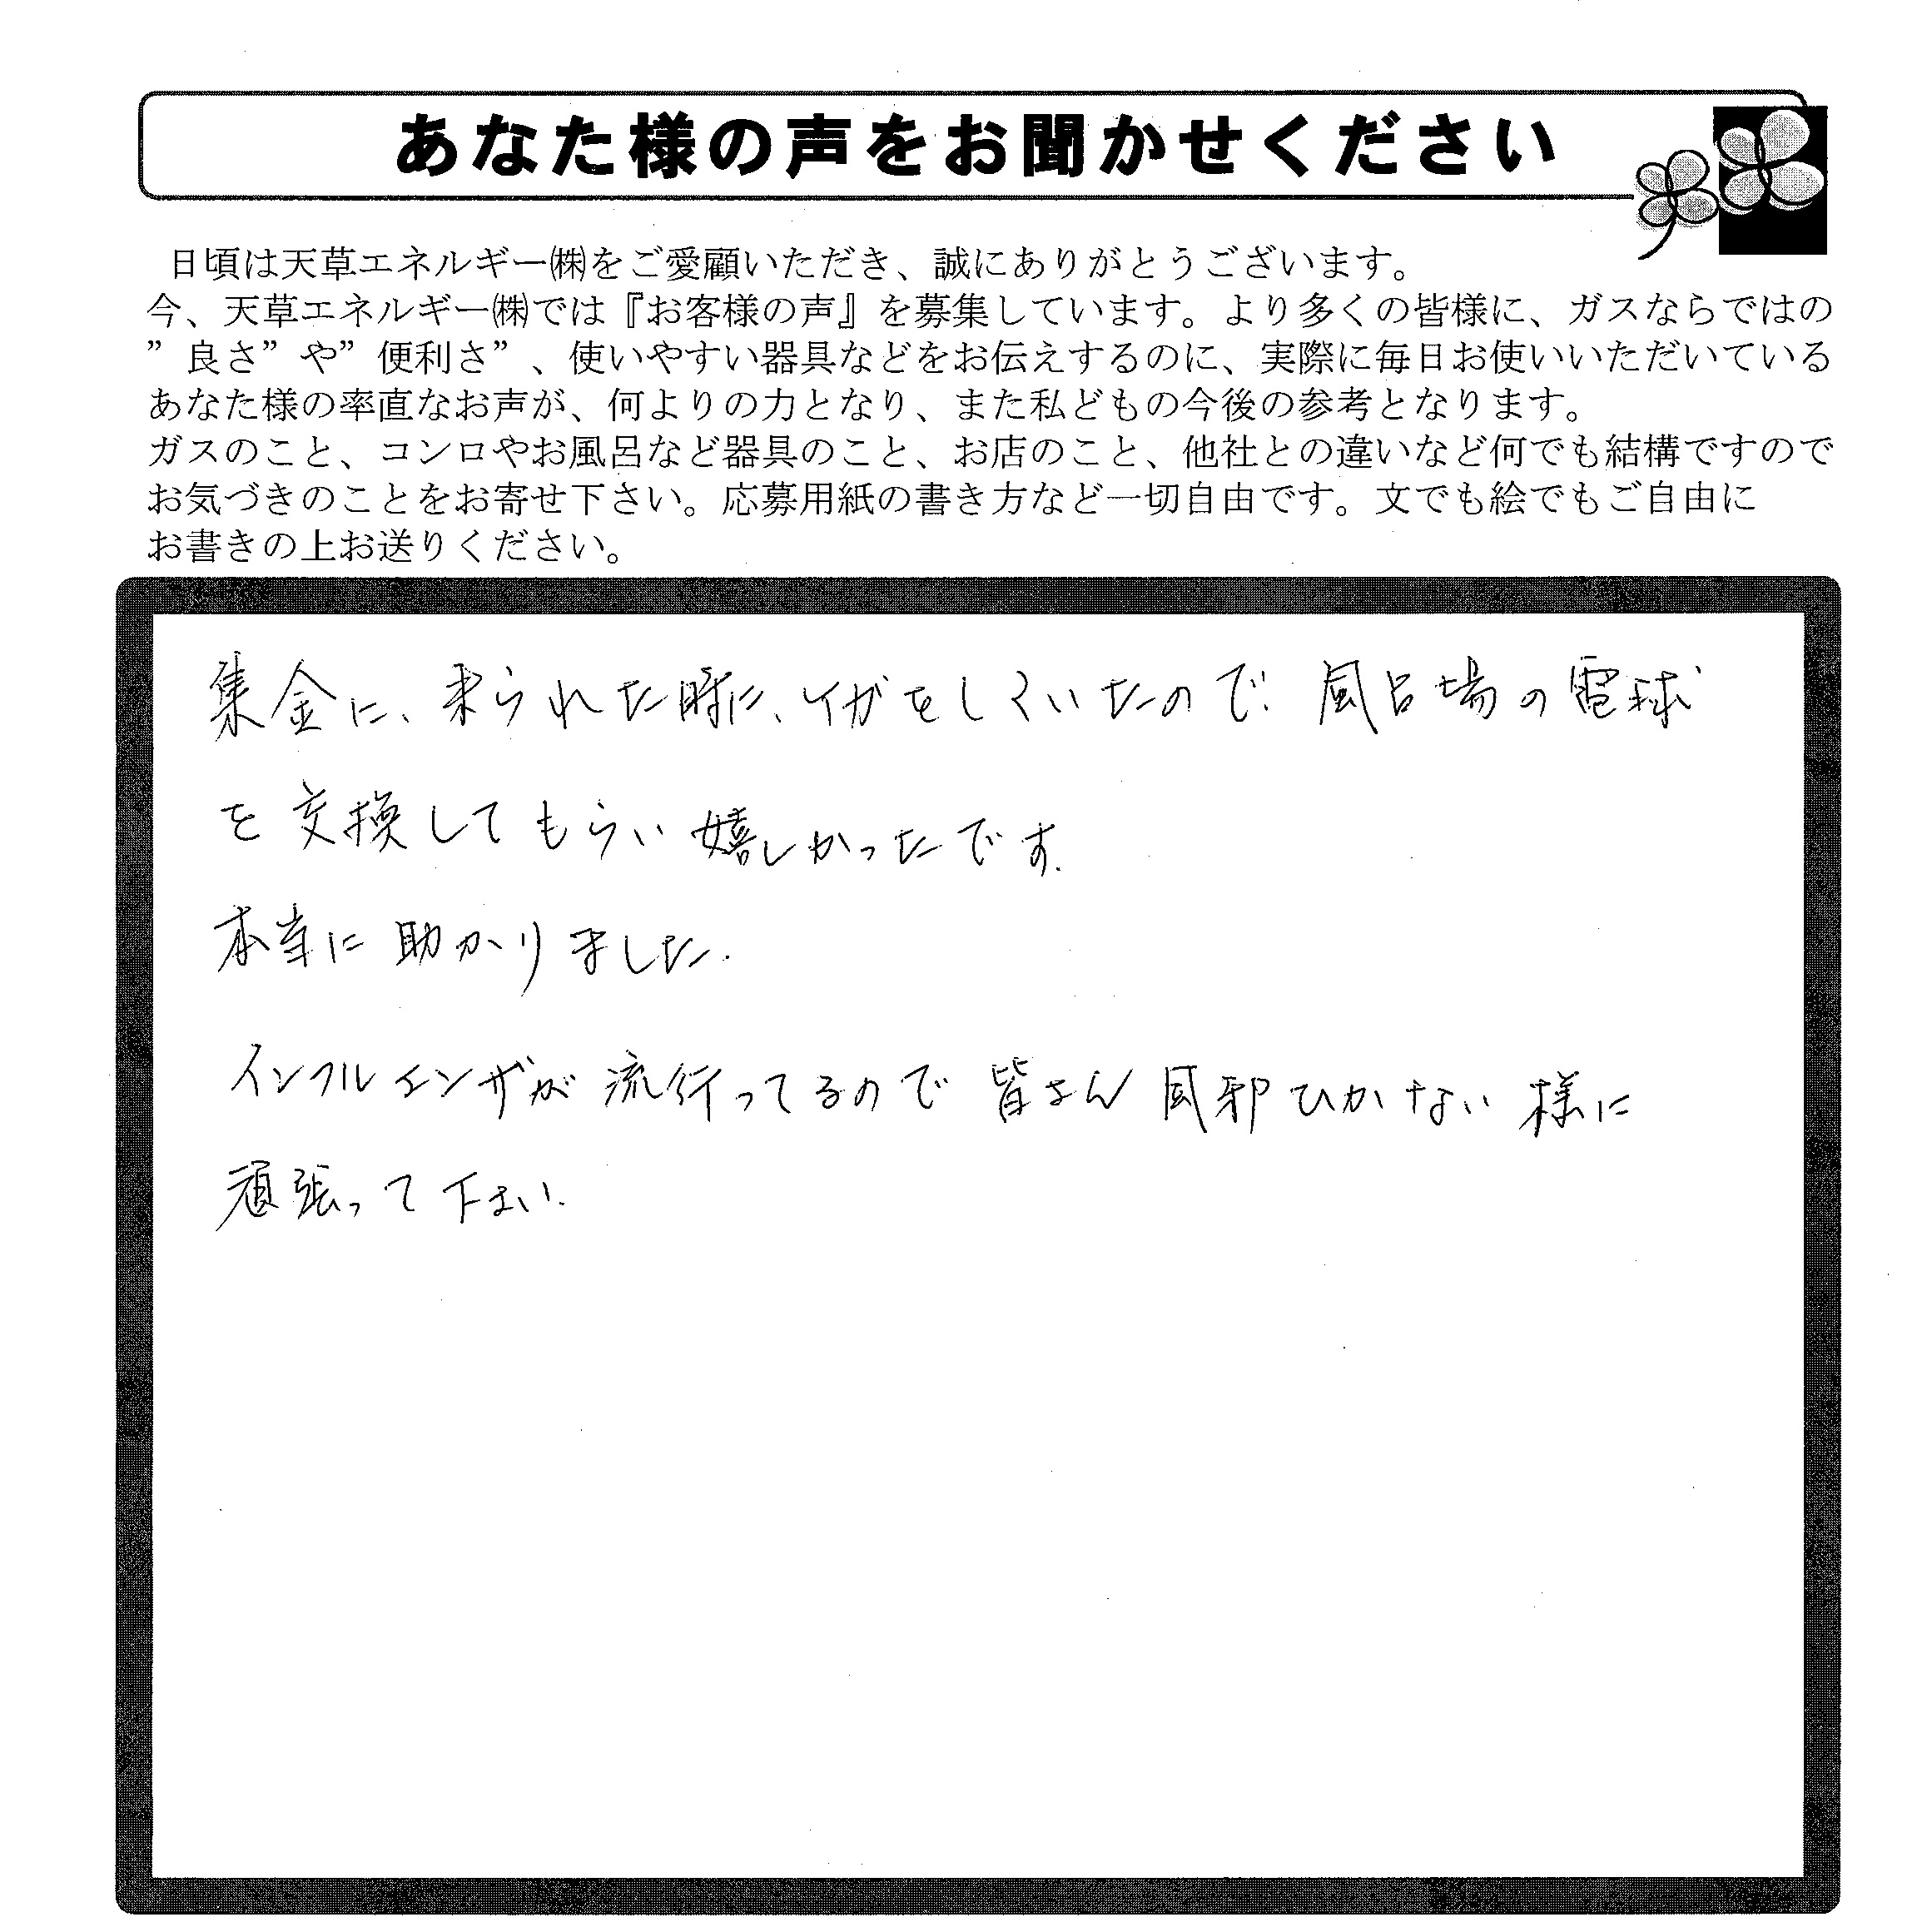 あなた様の声をお聞かせください
日頃は天草エネルギー㈱をご愛顧いただき、誠にありがとうございます。
今、天草エネルギー㈱では『お客様の声』を募集しています。より多くの皆様に、ガスならではの
”良さ”や”便利さ”、使いやすい器具などをお伝えするのに、実際に毎日お使いいただいている
あなた様の率直なお声が、何よりの力となり、また私どもの今後の参考となります。
ガスのこと、コンロやお風呂など器具のこと、お店のこと、他社との違いなど何でも結構ですので
お気づきのことをお寄せ下さい。応募用紙の書き方など一切自由です。文でも絵でもご自由に
お書きの上お送りください。
集金に、来られた時に、ケガをしていたので、風呂場の電球
を交換してもらい嬉しかったです。
本当に助かりました。
インフルエンザが流行ってるので皆さん風邪ひかない様に
頑張って下さい。